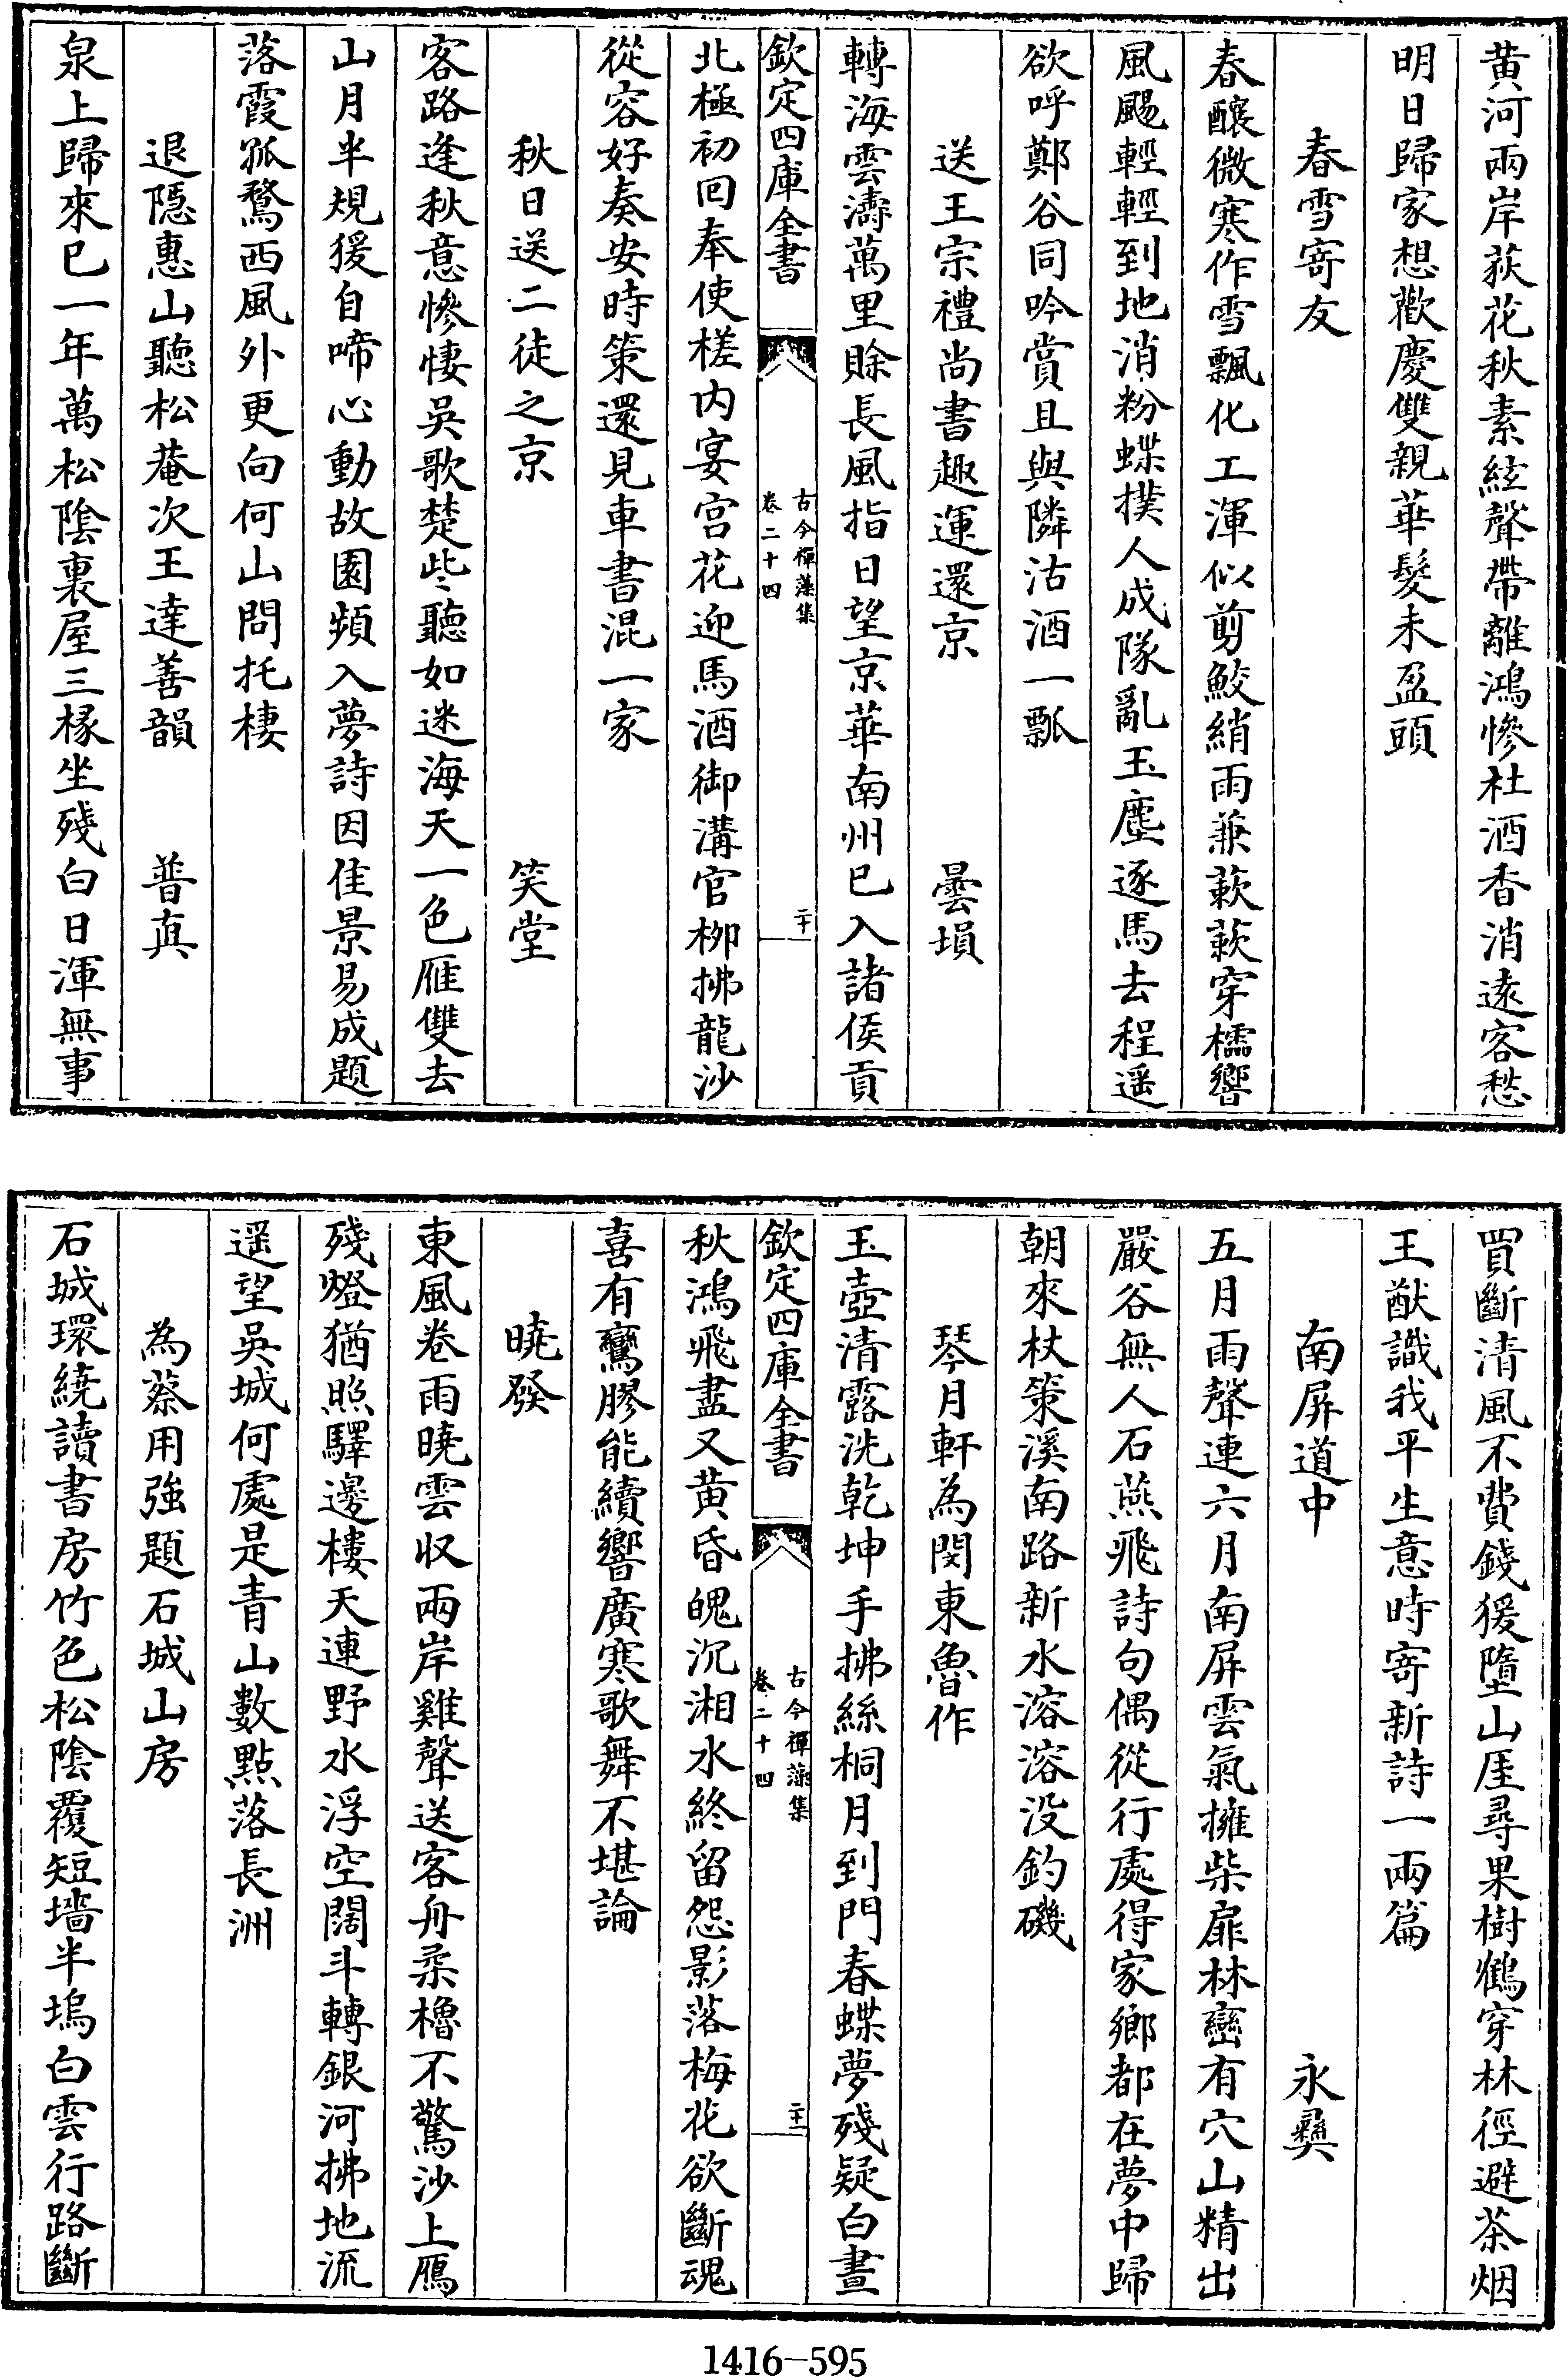 黄河兩岸荻花秋素絃聲帶離鴻慘杜酒香消遠客愁
明日歸家想歡慶雙親華髮未盈頭
春雪寄友
春釀微寒作雪飄化工渾似剪鮫綃雨兼蔌蔌穿櫺響
風颺輕輕到地消粉蝶撲人成隊亂玉塵逐馬去程遥
欲呼鄭谷同吟賞且與隣沽酒一瓢
送王宗禮尚書趣運還京 曇塤
轉海雲濤萬里賒長風指日望京華南州已入諸侯貢
欽定四庫全書
古今禪藻集
卷二十四
二十
北極初回奉使槎内宴宫花迎馬酒御溝官栁拂龍沙
從容好奏安時策還見車書混一家
秋日送二徒之京 笑堂
客路逢秋意慘悽吳歌楚些聽如迷海天一色雁雙去
山月半規猨自啼心動故園頻入夢詩因佳景易成題
落霞孤鶩西風外更向何山問托棲
退隠惠山聽松菴次王達善韻 普真
泉上歸來已一年萬松隂裏屋三椽坐殘白日渾無事
買斷清風不費錢猨墮山厓尋果樹鶴穿林徑避茶烟
王猷識我平生意時寄新詩一兩篇
南屏道中 永彞
五月雨聲連六月南屏雲氣擁柴扉林巒有穴山精出
嚴谷無人石燕飛詩句偶從行處得家鄉都在夢中歸
朝來杖策溪南路新水溶溶没釣磯
琴月軒為閔東魯作
玉壺清露洗乾坤手拂絲桐月到門春蝶夢殘疑白晝
欽定四庫全書
古今禪藻集
卷二十四
二十一
秋鴻飛盡又黄昏魄沉湘水終留怨影落梅花欲斷魂
喜有鸞膠能續響廣寒歌舞不堪論
曉發
東風卷雨曉雲收兩岸雞聲送客舟柔櫓不驚沙上鴈
殘燈猶照驛邊樓天連野水浮空闊斗轉銀河拂地流
遥望吳城何處是青山數點落長洲
為蔡用強題石城山房
石城環繞讀書房竹色松隂覆短墻半塢白雲行路斷
1416-595